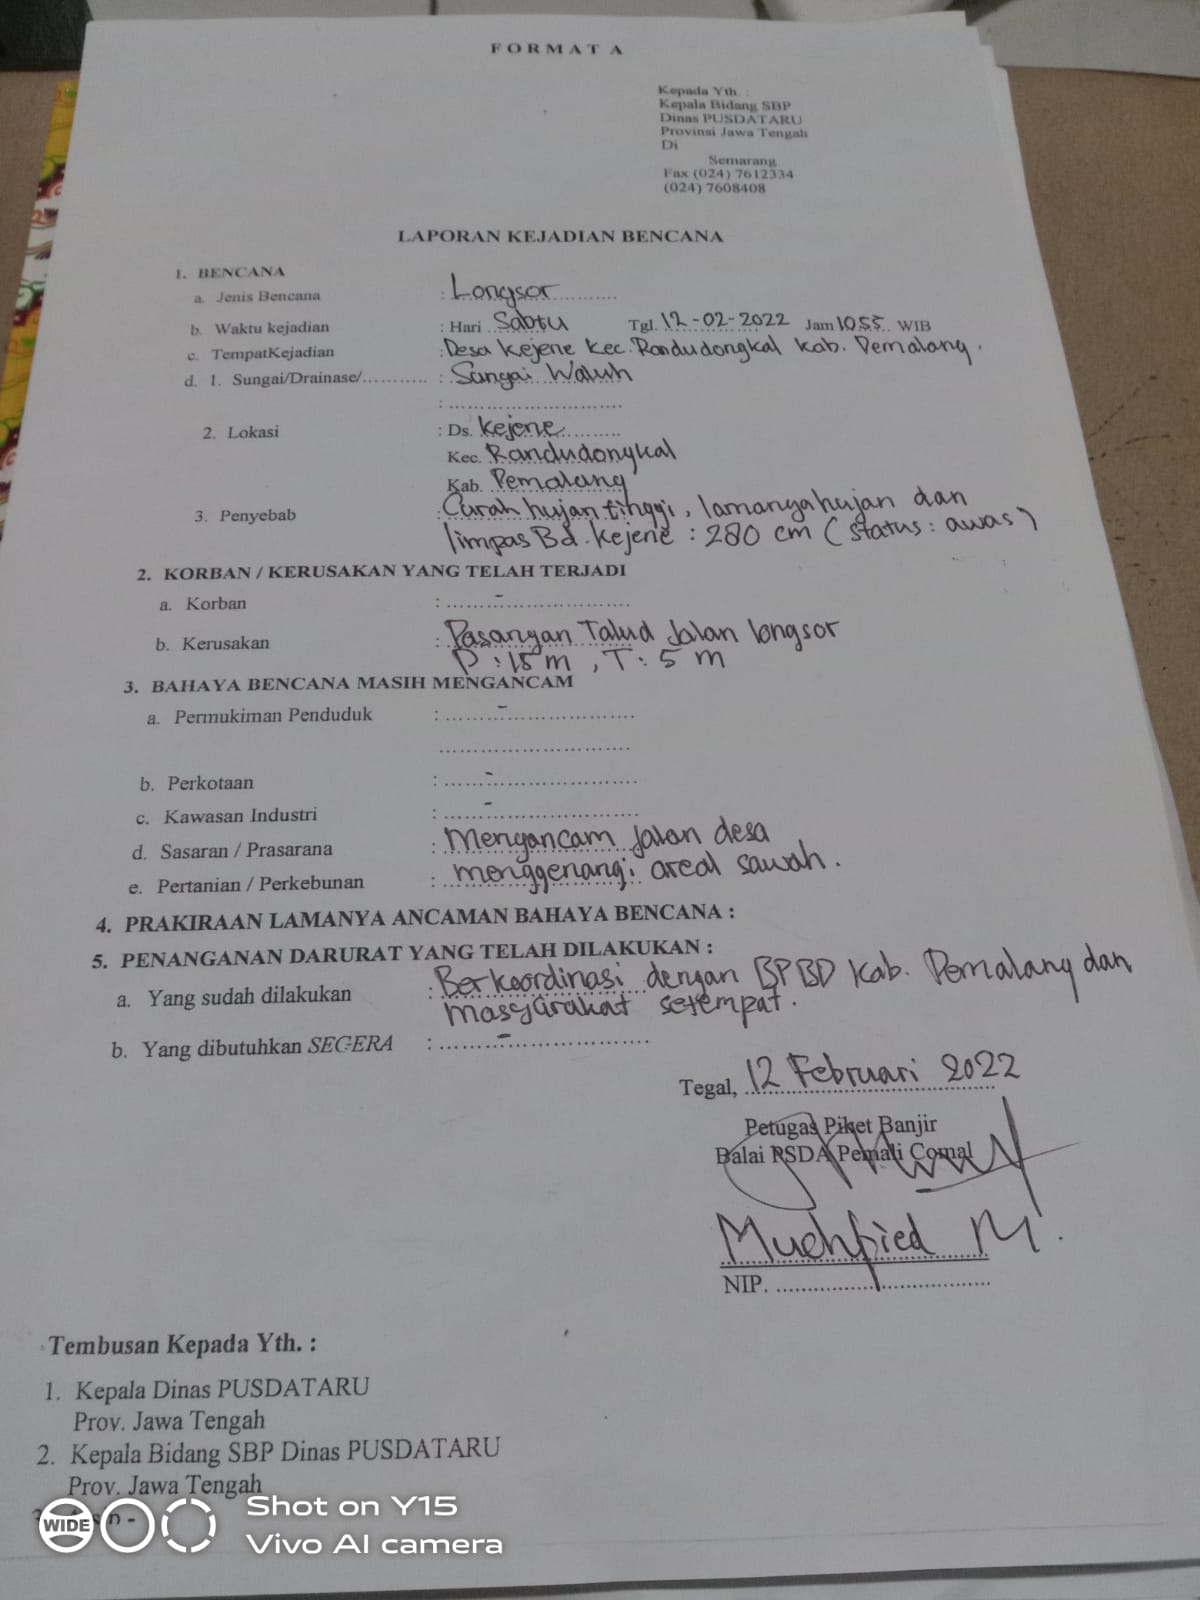 FORMAT A
Kepada Yth. :
Kepala Bidang SBP
Dinas PUSDATARU
Provinsi Jawa Tengah
Di
Semarang
Fax (024) 7612334
(024) 7608408
LAPORAN KEJADIAN BENCANA
1. BENCANA
a. Jenis Bencana : Longsor
b. Waktu kejadian : Hari Sabtu Tgl. 12-02-2022 Jam 10.55 WIB
c. TempatKejadian : Desa Kejene Kec. Randudongkal Kab. Pemalang.
d. 1. Sungai/Drainase/............ : Sungai Waluh
: ..............................
2. Lokasi : Ds. Kejene
Kec. Randudongkal
Kab. Pemalang
3. Penyebab : Curah hujan tinggi, lamanya hujan dan
limpas Bd. Kejene : 280 cm (status : awas)
2. KORBAN / KERUSAKAN YANG TELAH TERJADI
a. Korban : -
b. Kerusakan : Pasangan Talud Jalan longsor
P : 15 m , T : 5 m
3. BAHAYA BENCANA MASIH MENGANCAM
a. Permukiman Penduduk : -
..............................
b. Perkotaan : -
c. Kawasan Industri : -
d. Sasaran / Prasarana : Mengancam Jalan desa
e. Pertanian / Perkebunan : menggenangi areal sawah.
4. PRAKIRAAN LAMANYA ANCAMAN BAHAYA BENCANA :
5. PENANGANAN DARURAT YANG TELAH DILAKUKAN :
a. Yang sudah dilakukan : Berkoordinasi dengan BPBD Kab. Pemalang dan
masyarakat setempat.
b. Yang dibutuhkan SEGERA : -
Tegal, 12 Februari 2022
Petugas Piket Banjir
Balai PSDA Pemali Comal
Muchfied M.
NIP. ..............................
Tembusan Kepada Yth. :
1. Kepala Dinas PUSDATARU
Prov. Jawa Tengah
2. Kepala Bidang SBP Dinas PUSDATARU
Prov. Jawa Tengah
WIDE
Shot on Y15
Vivo AI camera